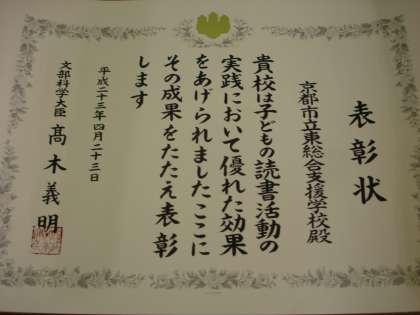 表彰状
京都市立東総合支援学校殿
貴校は子どもの読書活動の
実践において優れた効果
をあげられましたここに
その成果をたたえ表彰
します
平成二十三年四月二十三日
文部科学大臣 髙木義明